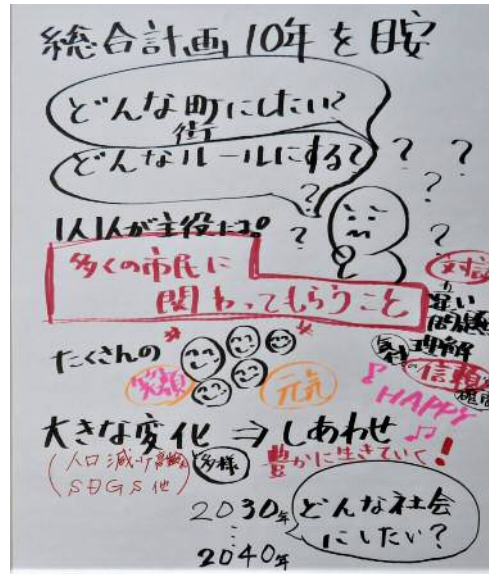 総合計画10年を目安
どんな町にしたい?
街
どんなルールにする?
? ? ? ? ? ?
1人1人が主役に。
多くの市民に
関わってもらうこと
たくさんの
笑顔
元気
信頼
♪ HAPPY ♫
大きな変化 ⇒ しあわせ
(人口減少
SDGS他)
多様
豊かに生きていく!
2030年
2040年
どんな社会
にしたい?